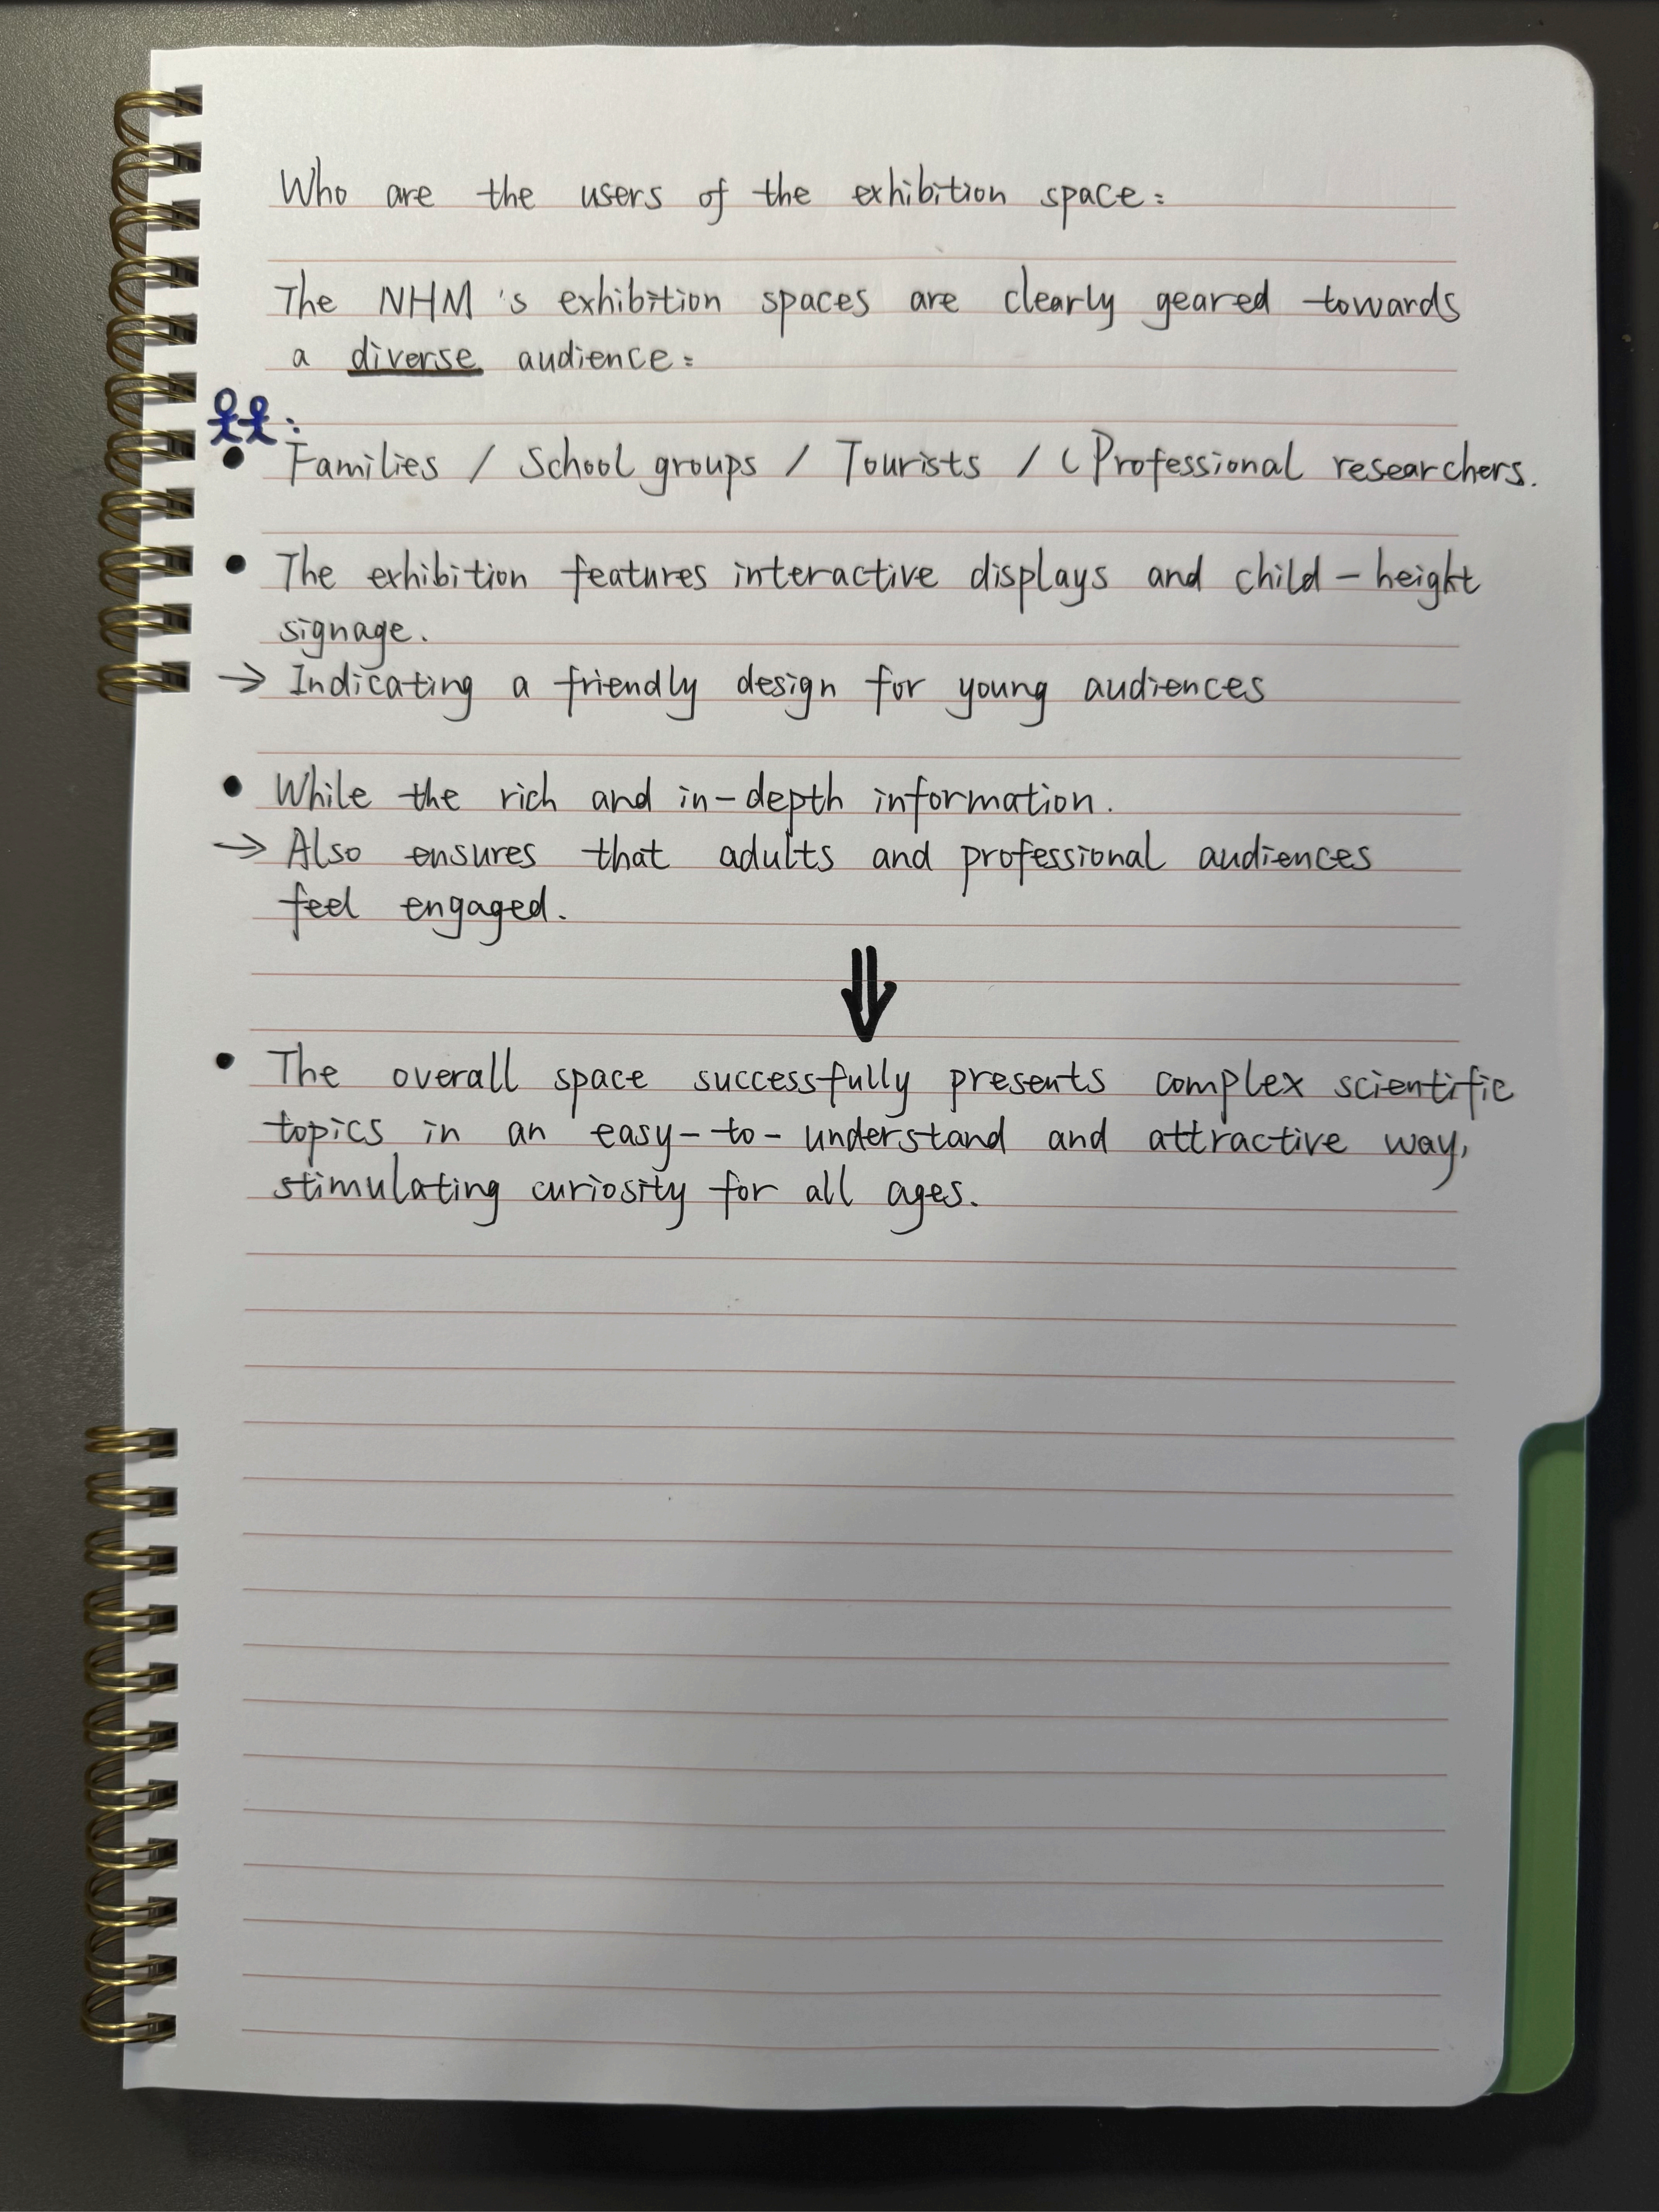 Who are the users of the exhibition space:
The NHM's exhibition spaces are clearly geared towards
a diverse audience:
:
• Families / School groups / Tourists / (Professional researchers.
• The exhibition features interactive displays and child-height
signage.
→ Indicating a friendly design for young audiences
• While the rich and in-depth information.
→ Also ensures that adults and professional audiences
feel engaged.
⇓
• The overall space successfully presents complex scientific
topics in an easy-to-understand and attractive way,
stimulating curiosity for all ages.